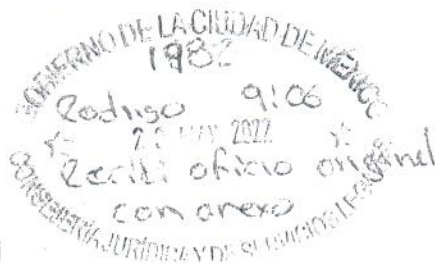 GOBIERNO DE LA CIUDAD DE MÉXICO
1982
Rodrigo 9:06
2 MAY 2022
Recibí oficio original
con anexo
CONSEJERÍA JURÍDICA Y DE SERVICIOS LEGALES